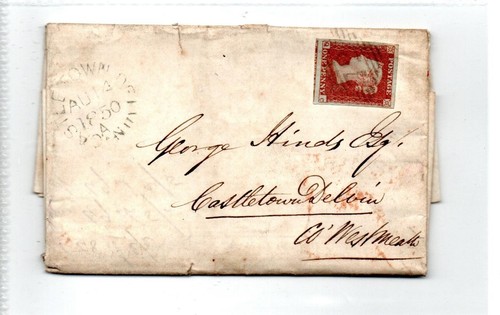 CASTLETOWN DELVIN
AU 14
1850
A
POSTAGE
ONE PENNY
George Hinds Esq.
Castletown Delvin
Co Westmeath